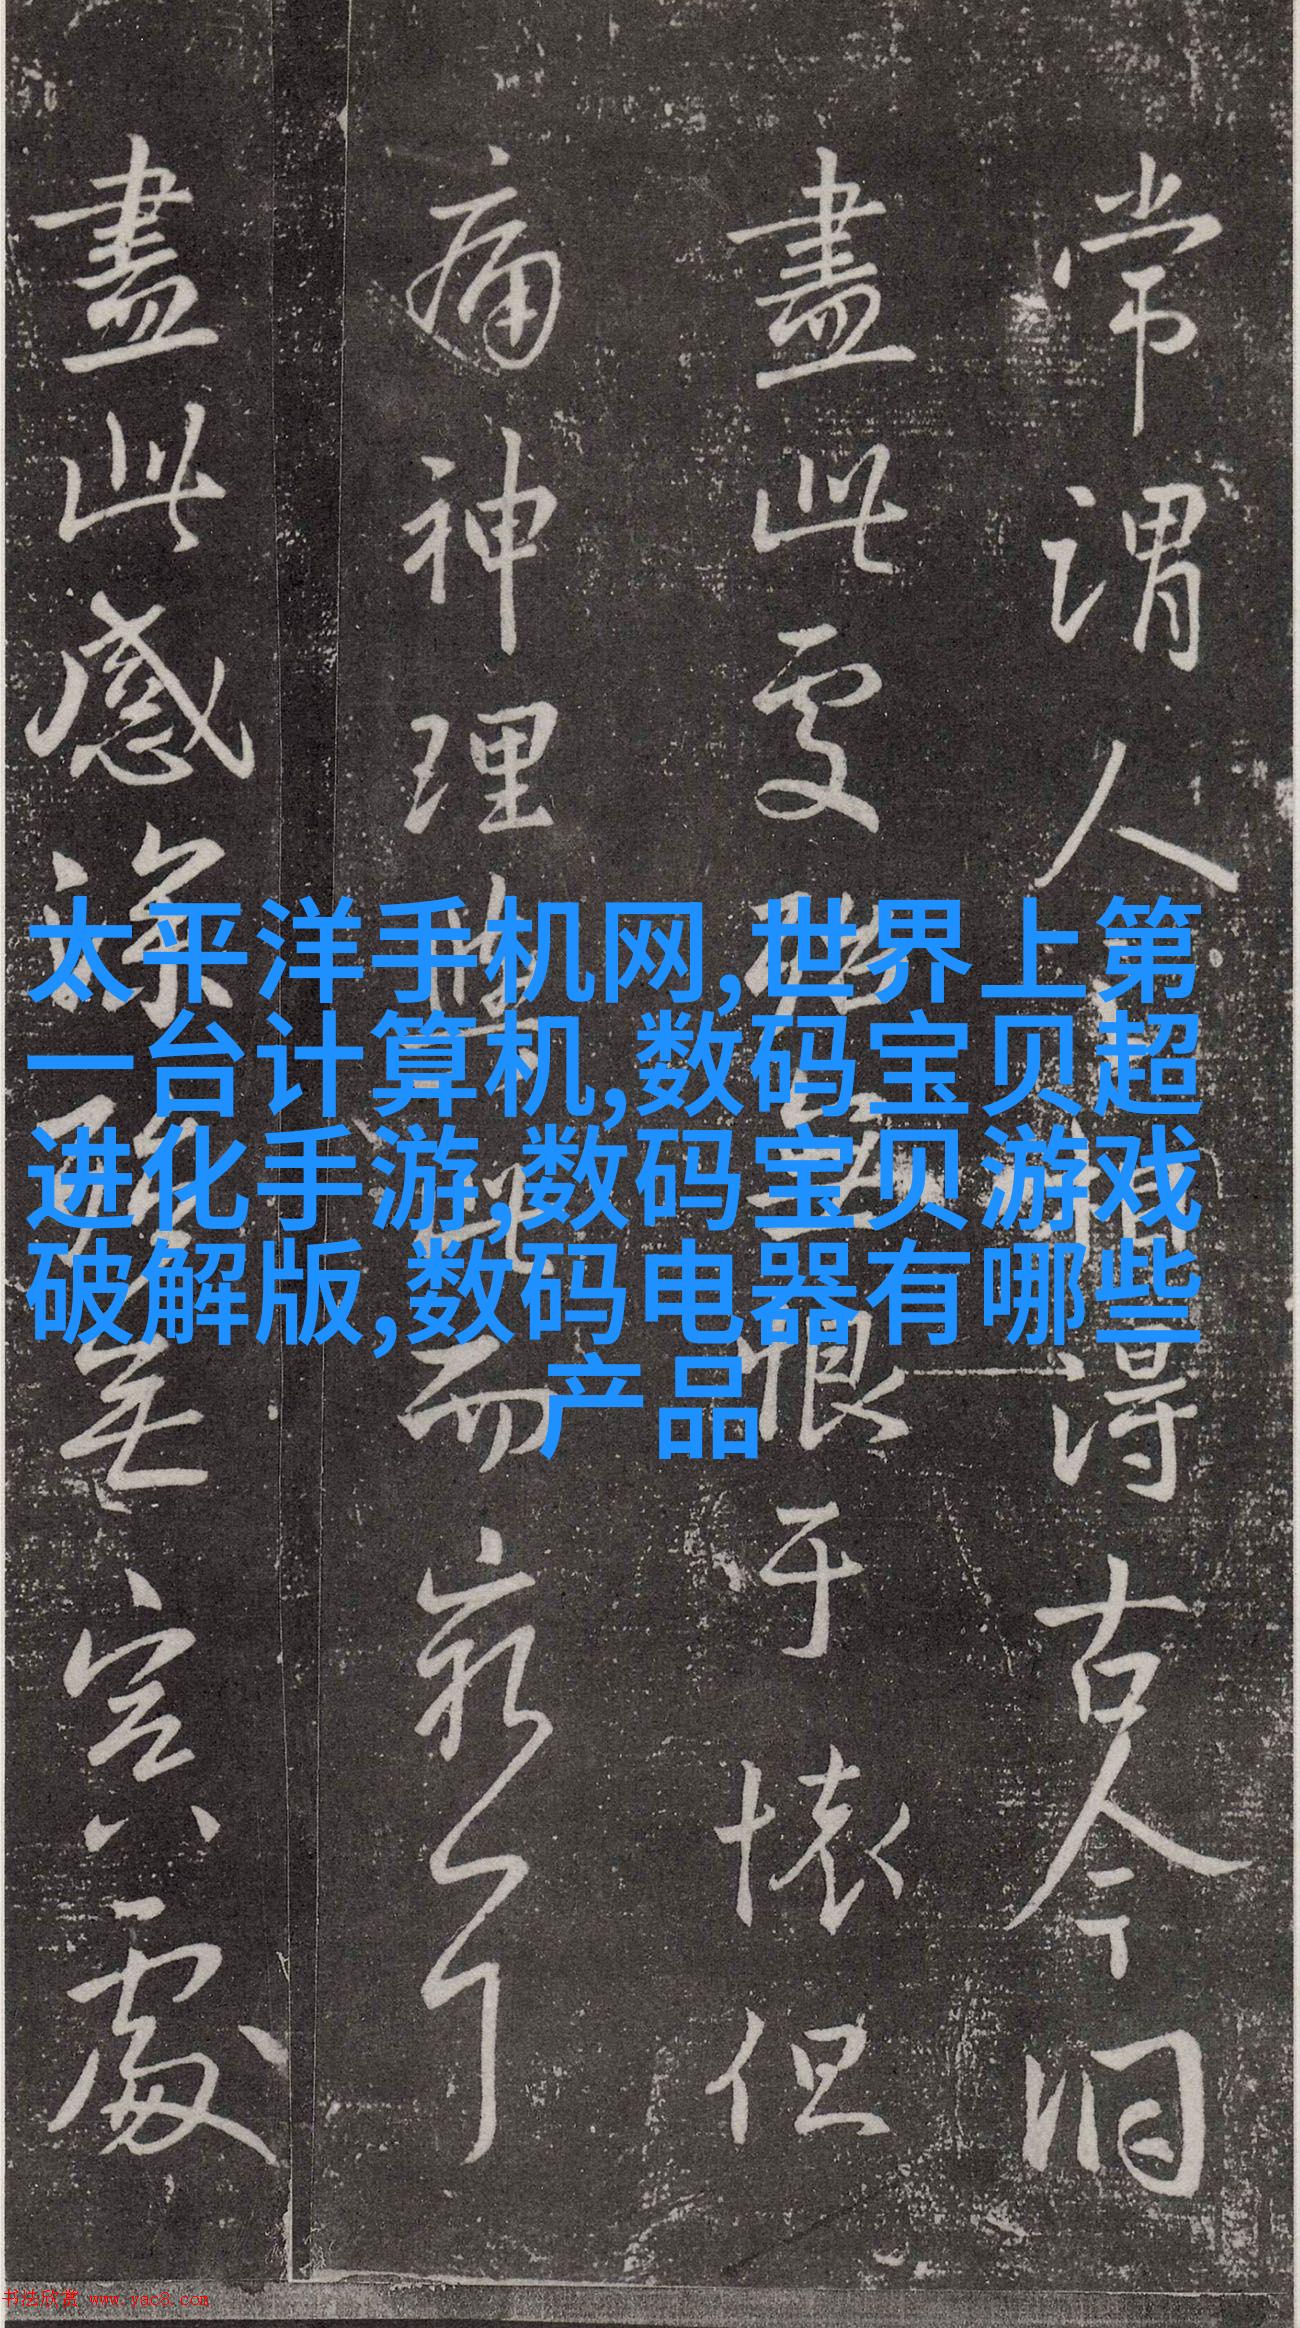 常謂人得古今洞
盡此處恨于懷但
痛神理此而窮
盡此感處
太平洋手机网,世界上第
一台计算机,数码宝贝超
进化手游,数码宝贝游戏
破解版,数码电器有哪些
产品
书法欣赏 www.yac8.com